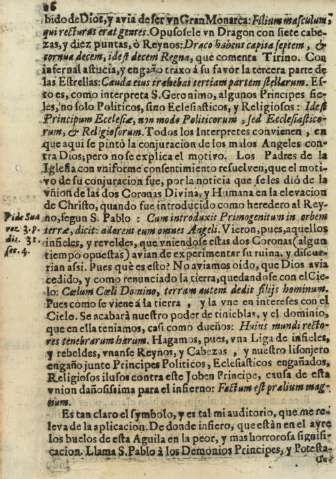 86
bido de Dios, y avia de ser vn Gran Monarca: Filium masculum
qui recturus erat gentes. Opusosele vn Dragon con siete cabe
zas, y diez puntas, ò Reynos: Draco habens capita septem, &
cornua decem, idest decem Regna, que comenta Tirino. Con
infernal astucia, y engaño traxo à su favor la tercera parte de
las Estrellas: Cauda eius trahebat tertiam partem stellarum. Es-
to es, como interpreta S. Geronimo, algunos Principes fie
les, no solo Politicos, sino Eclesiasticos, y Religiosos: Idest
Principum Ecclesiæ, non modo Politicorum, sed Ecclesiastico-
rum, & Religiosorum. Todos los Interpretes convienen, en
que aqui se pintò la conjuracion de los malos Angeles con-
tra Dios, pero no se explica el motivo. Los Padres de la
Iglesia con vniforme consentimiento resuelven, que el moti-
vo de su conjuracion fue, por la noticia que se les diò de la
vnion de las dos Coronas Divina, y Humana en la elevacion
de Christo, quando fue introducido como heredero al Rey-
Vide Sua no, segun S. Pablo: Cum introduxit Primogenitum in orbem
rez 3. p. terræ, dicit: adorent eum omnes Angeli. Vieron, pues, aquellos
dis. 31. infieles, y reveldes, que vniendose estas dos Coronas (algun
sec. 4. tiempo opuestas) avian de experimentar su ruina, y discur-
rian assi. Pues què es esto? No aviamos oido, que Dios avia
cedido, y como renunciado la tierra, quedandose con el Cie-
lo: Cælum Cæli Domino, terram autem dedit filijs hominum.
Pues como se viene à la tierra, y la vne en intereses con el
Cielo. Se acabarà nuestro poder de tinieblas, y el dominio,
que en ella teniamos, casi como dueños: Huius mundi recto-
res tenebrarum harum. Hagamos, pues, vna Liga de infieles,
y rebeldes, vnanse Reynos, y Cabezas, y nuestro lisonjero
engaño junte Principes Politicos, Eclesiasticos engañados,
Religiosos ilusos contra este Joben Principe, causa de esta
vnion dañosissima para el infierno: Factum est prælium mag-
num.
Es tan claro el symbolo, y es tal mi auditorio, que me re-
leva de la aplicacion. De donde infiero, que estàn en el ayre
los buelos de esta Aguila en la peor, y mas horrorosa signifi-
cacion. Llama S. Pablo à los Demonios Principes, y Potesta-